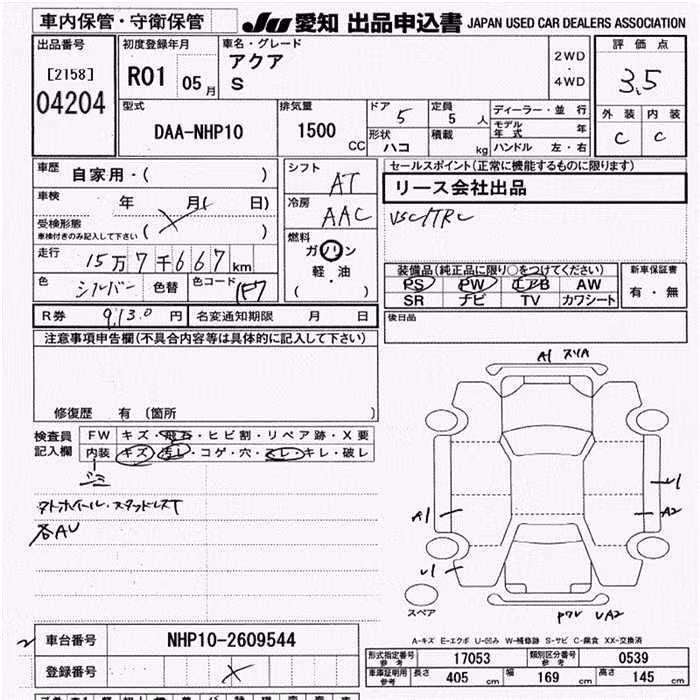 車内保管・守衛保管 JU 愛知 出品申込書 JAPAN USED CAR DEALERS ASSOCIATION
出品番号
[2158]
04204
初度登録年月
R01 05月
車名・グレード
アクア
S
2WD
・
4WD
評価点
3.5
外装 内装
C C
型式
DAA-NHP10
排気量
1500 CC
ドア 5
定員 5 人
形状 ハコ
積載 kg
ディーラー・並行
モデル年式 年
ハンドル 左・右
車歴 自家用・( )
車検 年 月( 日)
受検形態
車検付きのみ記入して下さい ( )
走行 15万7千667km
色 シルバー 色替 色コード 1F7
シフト AT
冷房 AAC
燃料
ガソリン
軽・油
( )
セールスポイント(正常に機能するものに限ります)
リース会社出品
VSC/TRC
装備品(純正品に限り○をつけてください)
PS PW エアB AW
SR ナビ TV カワシート
新車保証書
有・無
後日品
R券 9,130 円 名変通知期限 月 日
注意事項申告欄(不具合内容等は具体的に記入して下さい)
修復歴 有 〔箇所 〕
検査員記入欄
FW キズ・飛石・ヒビ割・リペア跡・X要
内装 キズ・汚レ・コゲ・穴・スレ・キレ・破レ
ゴミ
タトホイール・スタッドレスT
各AU
A1 スリA
A1
U1
U1
A2
UA2
スペア
A-キズ E-エクボ U-凹み W-補修跡 S-サビ C-腐食 XX-交換済
車台番号 NHP10-2609544
登録番号
形式指定番号 参考 17053
類別区分番号 参考 0539
車庫証明用 参考 長さ 405 cm 幅 169 cm 高さ 145 cm